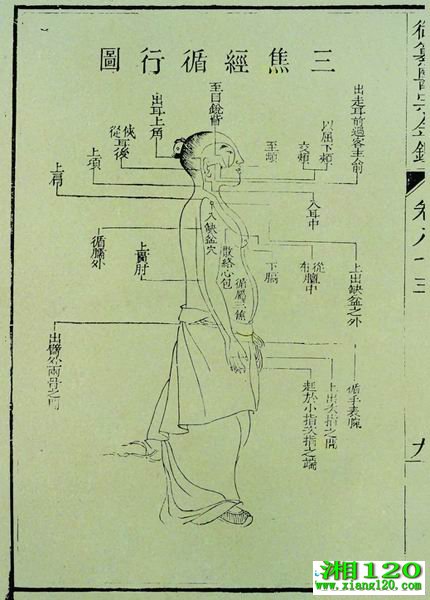 御纂醫宗金鑑
卷八十三
九
三焦經循行圖
出走耳前過客主人前
以屈下頰
交頰
至䪼
至目銳眥
出耳上角
俠耳後
從
上項
上肩
入耳中
入缺盆穴
上出缺盆之外
從膻中
布膻中
下膈
散絡心包
循屬三焦
上貫肘
循臑外
出臂外兩骨之間
循手表腕
上出次指之間
起於小指次指之端
湘120
www.xiang120.com